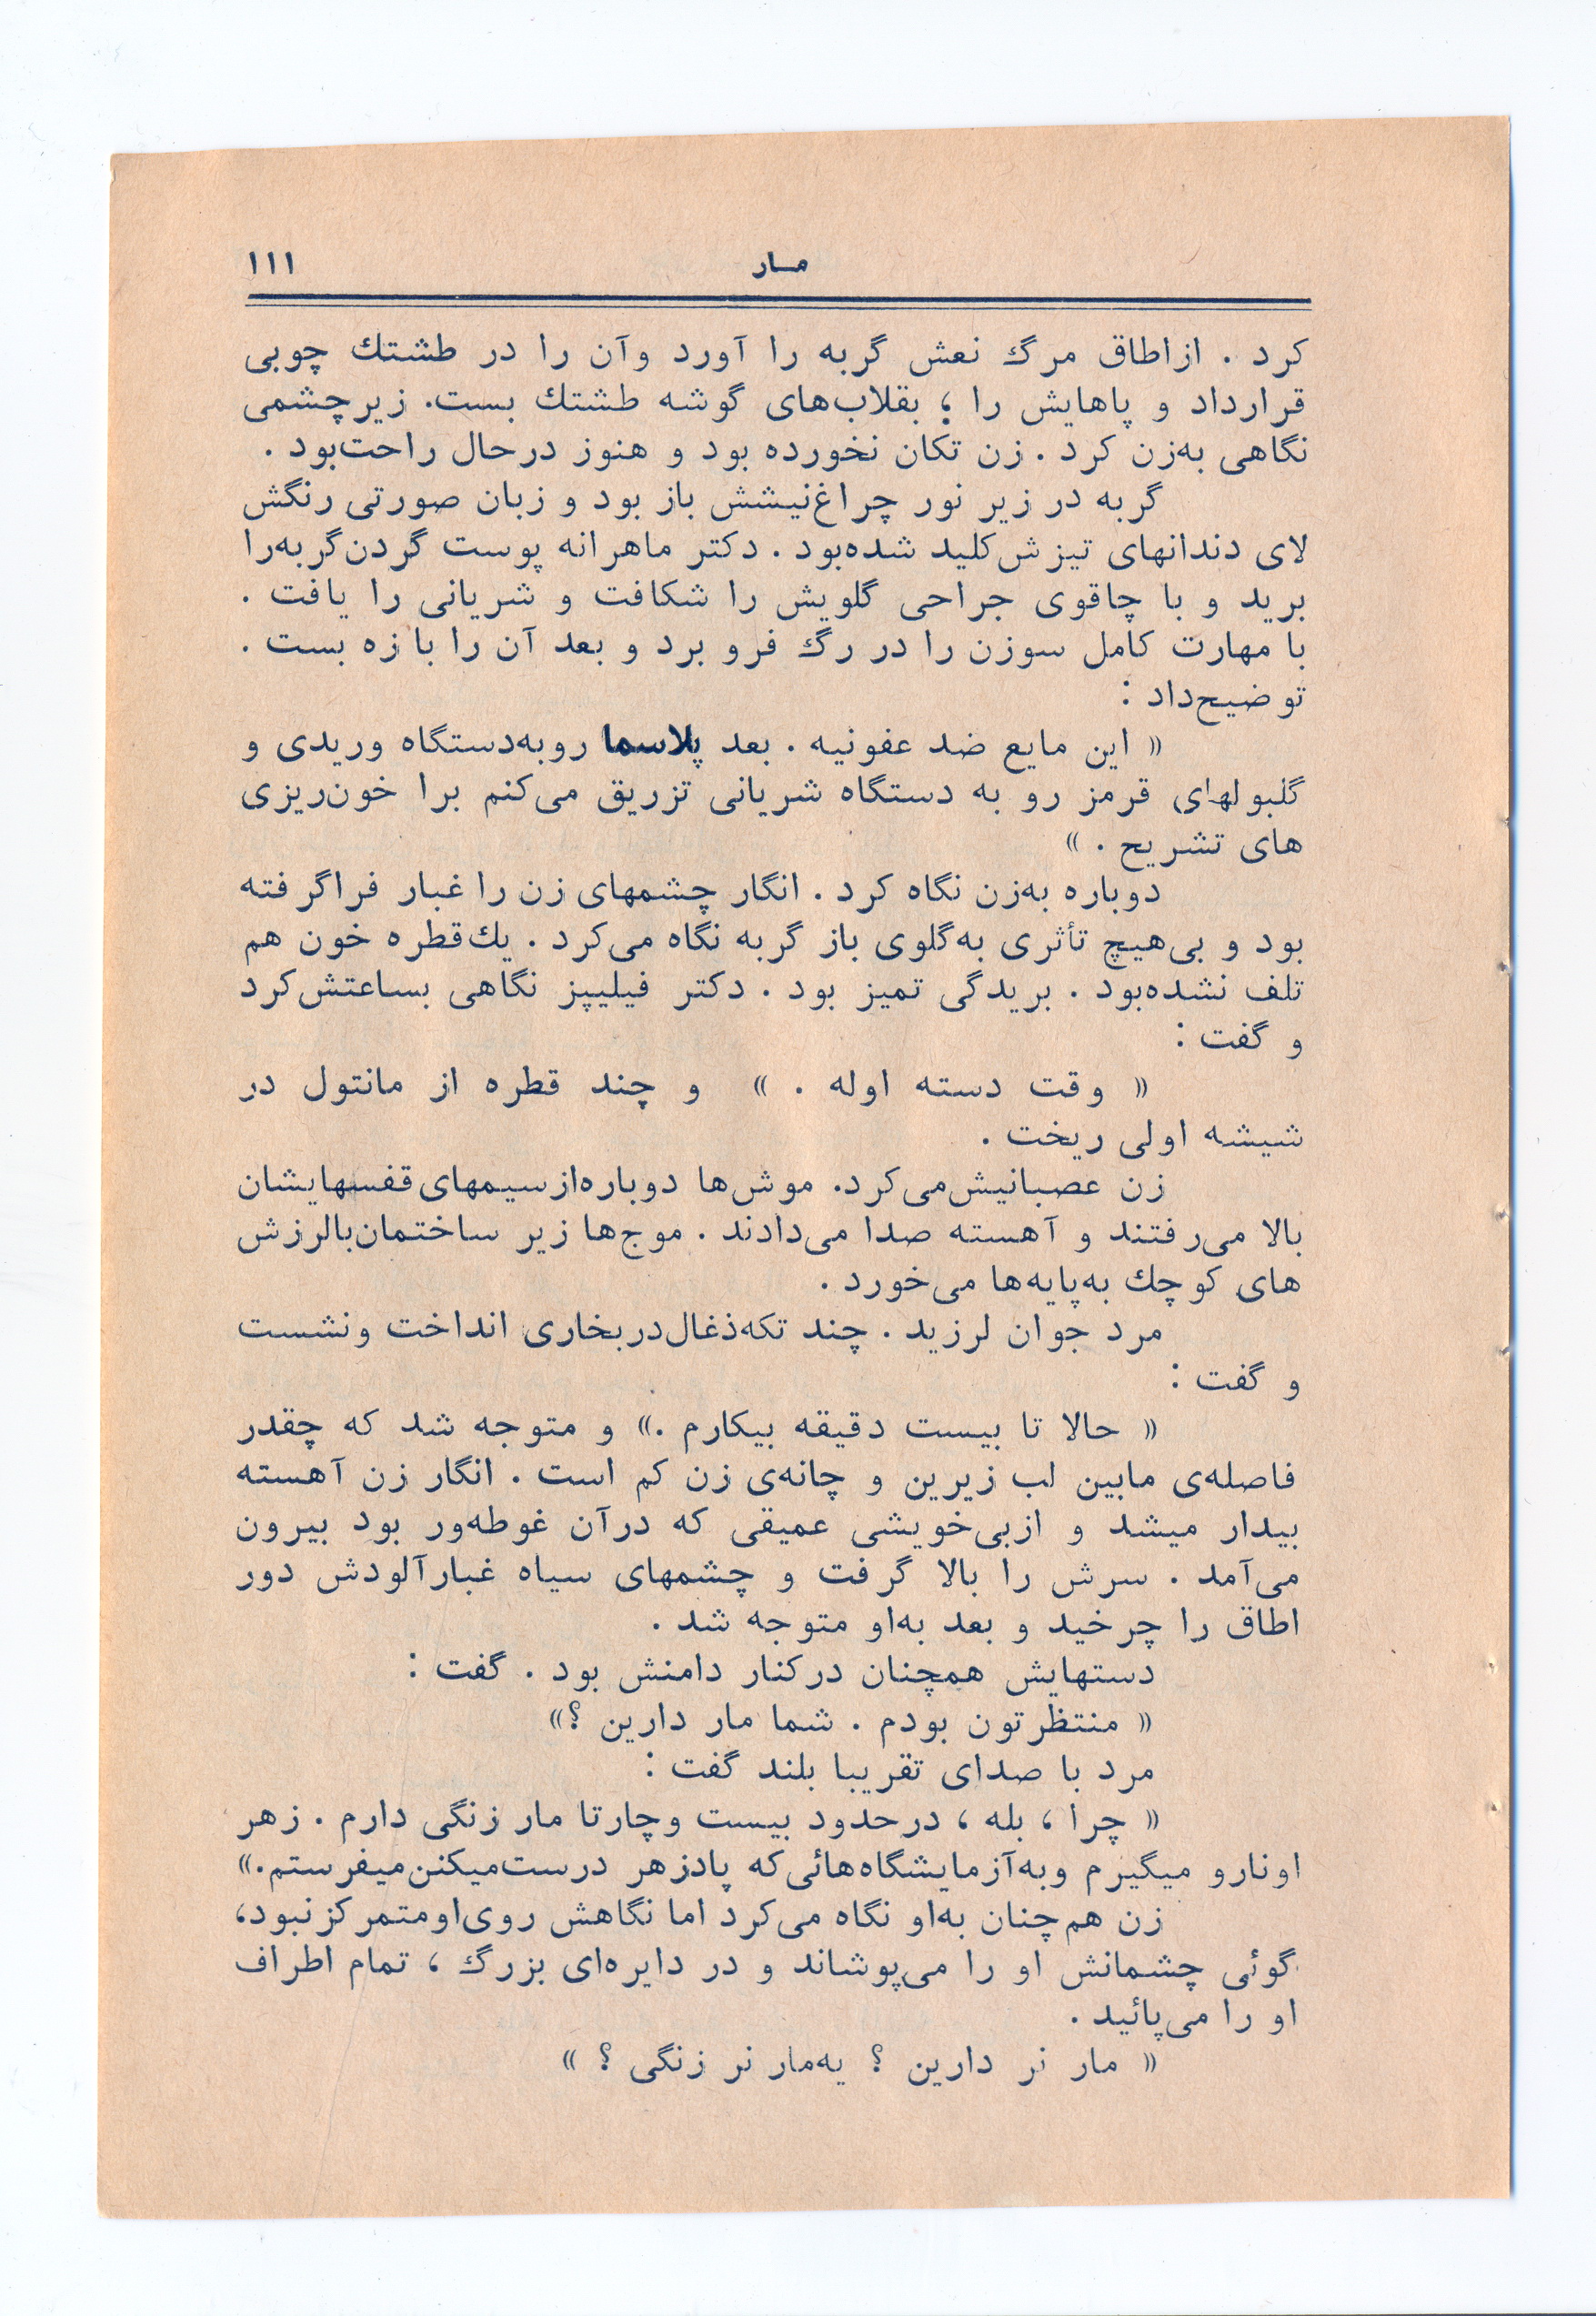 مـار ۱۱۱
کرد . ازاطاق مرگ نعش گربه را آورد وآن را در طشتك چوبی
قرارداد و پاهایش را ؛ بقلاب‌های گوشه طشتك بست. زیرچشمی
نگاهی به‌زن کرد . زن تکان نخورده بود و هنوز درحال راحت‌بود .
گربه در زیر نور چراغ‌نیشش باز بود و زبان صورتی رنگش
لای دندانهای تیزش‌کلید شده‌بود . دکتر ماهرانه پوست گردن‌گربه‌را
برید و با چاقوی جراحی گلویش را شکافت و شریانی را یافت .
با مهارت کامل سوزن را در رگ فرو برد و بعد آن را با زه بست .
توضیح‌داد :
« این مایع ضد عفونیه . بعد پلاسما روبه‌دستگاه وریدی و
گلبولهای قرمز رو به دستگاه شریانی تزریق می‌کنم برا خون‌ریزی
های تشریح . »
دوباره به‌زن نگاه کرد . انگار چشمهای زن را غبار فراگرفته
بود و بی‌هیچ تأثری به‌گلوی باز گربه نگاه می‌کرد . یك‌قطره خون هم
تلف نشده‌بود . بریدگی تمیز بود . دکتر فیلیپز نگاهی بساعتش‌کرد
و گفت :
« وقت دسته اوله . » و چند قطره از مانتول در
شیشه اولی ریخت .
زن عصبانیش‌می‌کرد. موش‌ها دوباره‌ازسیمهای‌قفسهایشان
بالا می‌رفتند و آهسته صدا می‌دادند . موج‌ها زیر ساختمان‌بالرزش
های کوچك به‌پایه‌ها می‌خورد .
مرد جوان لرزید . چند تکه‌ذغال‌دربخاری انداخت ونشست
و گفت :
« حالا تا بیست دقیقه بیکارم .» و متوجه شد که چقدر
فاصله‌ی مابین لب زیرین و چانه‌ی زن کم است . انگار زن آهسته
بیدار میشد و ازبی‌خویشی عمیقی که درآن غوطه‌ور بود بیرون
می‌آمد . سرش را بالا گرفت و چشمهای سیاه غبارآلودش دور
اطاق را چرخید و بعد به‌او متوجه شد .
دستهایش همچنان درکنار دامنش بود . گفت :
« منتظرتون بودم . شما مار دارین ؟»
مرد با صدای تقریبا بلند گفت :
« چرا ، بله ، درحدود بیست وچارتا مار زنگی دارم . زهر
اونارو میگیرم وبه‌آزمایشگاه‌هائی‌که پادزهر درست‌میکنن‌میفرستم.»
زن هم‌چنان به‌او نگاه می‌کرد اما نگاهش روی‌اومتمرکزنبود،
گوئی چشمانش او را می‌پوشاند و در دایره‌ای بزرگ ، تمام اطراف
او را می‌پائید .
« مار نر دارین ؟ یه‌مار نر زنگی ؟ »